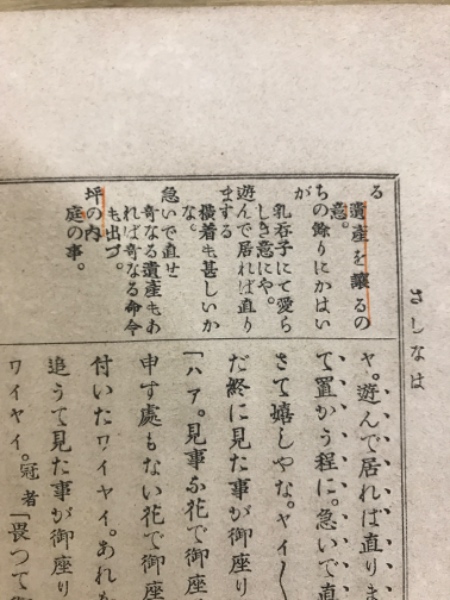 さしなは
る
遺産を譲るの
意。
ちの餘りにかはい
が
乳呑子にて愛ら
しき意にや。
遊んで居れば直り
まする
横着も甚しいか
な。
急いで直せ
奇なる遺産もあ
れば奇なる命令
も出づ。
坪の内
庭の事。
ヤ。遊んで居れば直りま
て置かう程に。急いで直
さて嬉しやな。ヤイ〱
だ終に見た事が御座り
「ハア。見事な花で御座
申す處もない花で御座
付いたワイヤイ。あれを
追うて見た事が御座り
ワイヤイ。冠者「畏つて